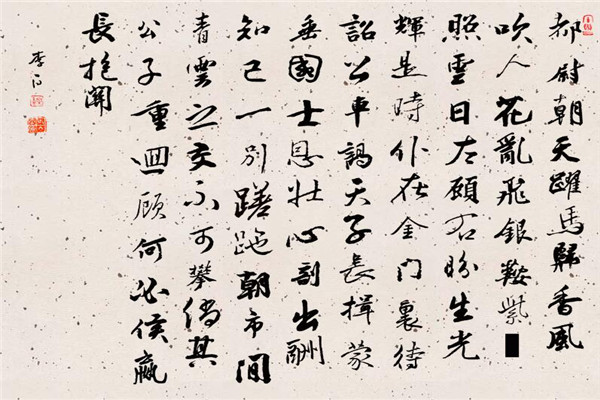 都尉朝天躍馬歸香風
吹人花亂飛銀鞍紫
照雲日左顧右盼生光
輝是時仆在金门裏待
詔公車謁天子長揖蒙
垂國士恩壯心剖出酬
知己一別蹉跎朝市間
青雲之交不可攀倘其
公子重迴顧何必侯嬴
長抱關
李白